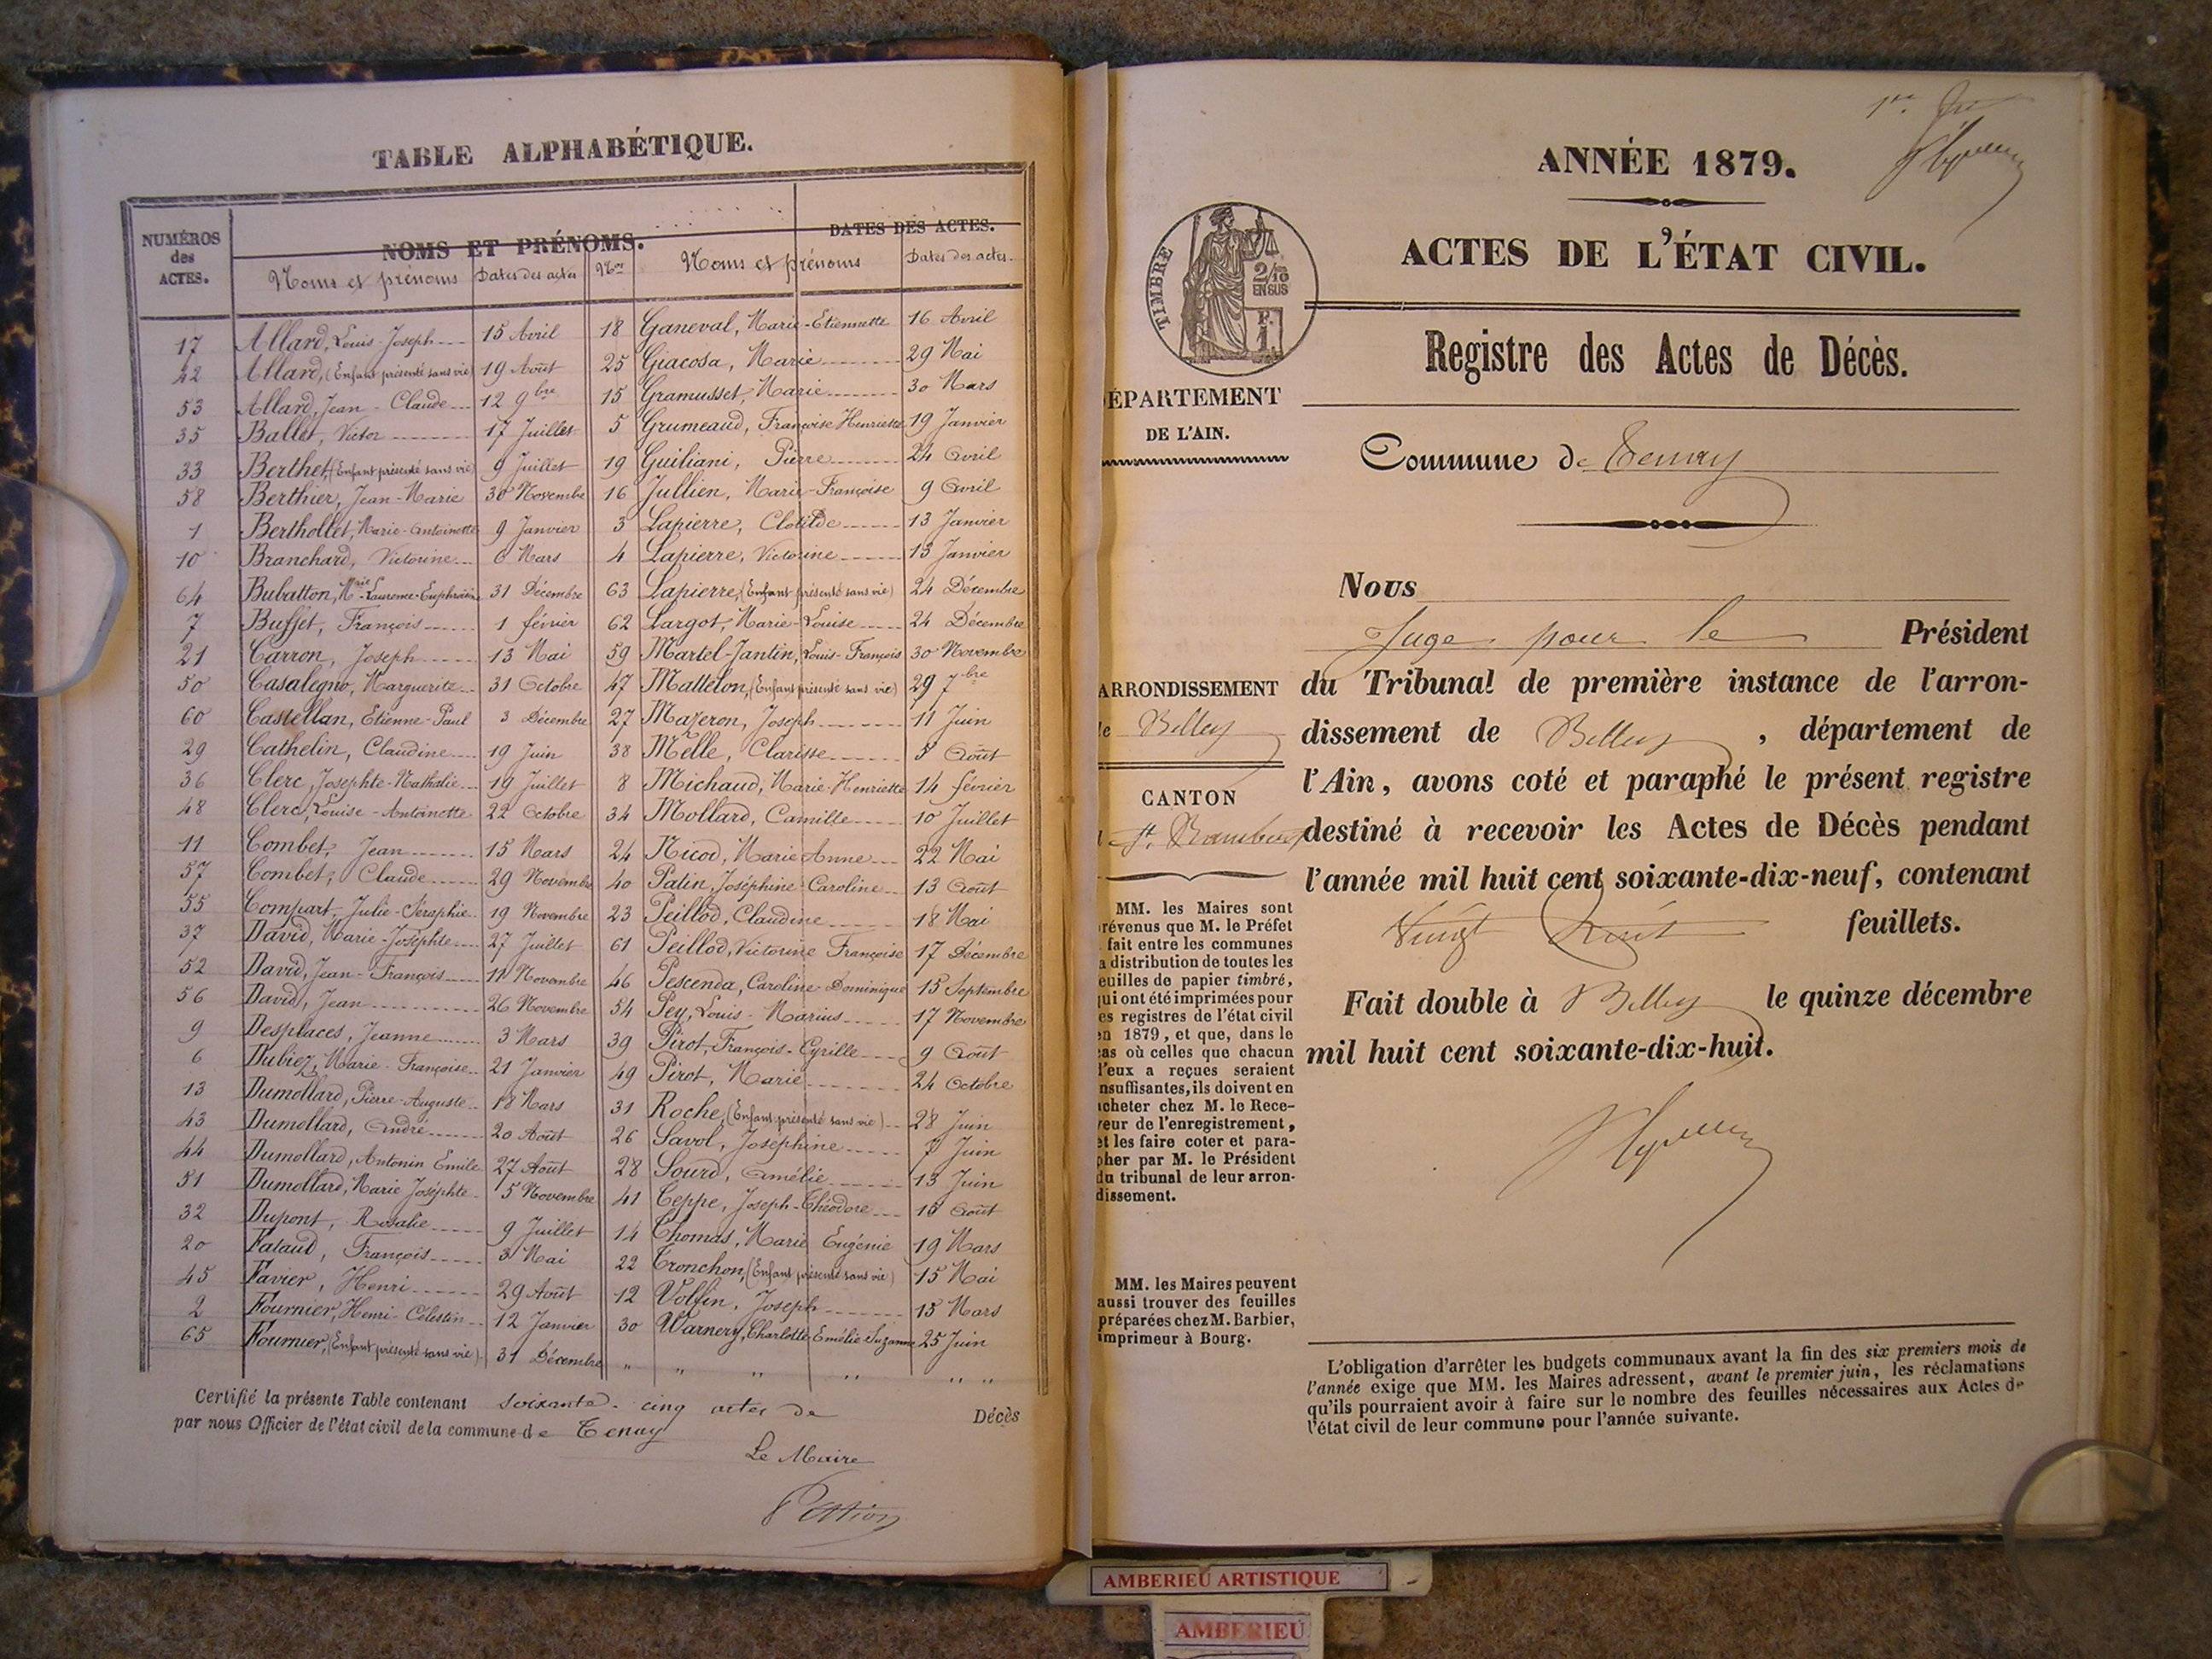 TABLE ALPHABÉTIQUE.
NUMÉROS des ACTES.
NOMS ET PRÉNOMS.
DATES DES ACTES.
Noms et prénoms Dates des actes Nos Noms et prénoms Dates des actes
17 Allard, Louis-Joseph 15 Avril 18 Ganeval, Marie-Etiennette 16 Avril
42 Allard, (Enfant présenté sans vie) 19 Août 25 Giacosa, Marie 29 Mai
53 Allard, Jean-Claude 12 9bre 15 Gramusset, Marie 30 Mars
35 Ballet, Victor 17 Juillet 5 Grumeaud, Françoise Henriette 19 Janvier
33 Berthet, (Enfant présenté sans vie) 9 Juillet 19 Guiliani, Pierre 24 Avril
58 Berthier, Jean-Marie 30 Novembre 16 Jullien, Marie-Françoise 9 Avril
1 Berthollet, Marie-Antoinette 9 Janvier 3 Lapierre, Clotilde 13 Janvier
10 Branchard, Victorine 6 Mars 4 Lapierre, Victorine 13 Janvier
64 Bubatton, Mrie-Laurence-Euphrosine 31 Décembre 63 Lapierre, (Enfant présenté sans vie) 24 Décembre
7 Buffet, François 1 février 62 Largot, Marie-Louise 24 Décembre
21 Carron, Joseph 13 Mai 59 Martel-Jantin, Louis-François 30 Novembre
50 Casalegno, Marguerite 31 Octobre 47 Mattelon, (Enfant présenté sans vie) 29 7bre
60 Castellan, Etienne-Paul 3 Décembre 27 Mazeron, Joseph 11 Juin
29 Cathelin, Claudine 19 Juin 38 Melle, Clarisse 5 Août
36 Clerc, Josephte-Nathalie 19 Juillet 8 Michaud, Marie-Henriette 14 février
48 Clerc, Louise-Antoinette 22 Octobre 34 Mollard, Camille 10 Juillet
11 Combet, Jean 15 Mars 24 Nicod, Marie Anne 22 Mai
57 Combet, Claude 29 Novembre 40 Patin, Joséphine-Caroline 13 Août
55 Compart, Julie-Séraphie 19 Novembre 23 Peillod, Claudine 18 Mai
37 David, Marie-Joséphte 27 Juillet 61 Peillod, Victorine Françoise 17 Décembre
52 David, Jean-François 11 Novembre 46 Pescenda, Caroline-Dominique 15 Septembre
56 David, Jean 26 Novembre 54 Pey, Louis-Marius 17 Novembre
9 Desplaces, Jeanne 3 Mars 39 Pirot, François-Cyrille 9 Août
6 Dubiez, Marie-Françoise 21 Janvier 49 Pirot, Marie 24 Octobre
13 Dumollard, Pierre-Auguste 18 Mars 31 Roche, (Enfant présenté sans vie) 28 Juin
43 Dumollard, André 20 Août 26 Savol, Joséphine Juin
44 Dumollard, Antonin Emile 27 Août 28 Sourd, Amélie 13 Juin
51 Dumollard, Marie Joséphte 5 Novembre 41 Teppe, Joseph-Théodore Août
32 Dupont, Rosalie 9 Juillet 14 Thomas, Marie Eugénie 19 Mars
20 Fataud, François 3 Mai 22 Tronchon, (Enfant présenté sans vie) 15 Mai
45 Favier, Henri 29 Août 12 Volfin, Joseph 15 Mars
2 Fournier, Henri-Célestin 12 Janvier 30 Warnery, Charlotte Emélie Suzanne 25 Juin
65 Fournier, (Enfant présenté sans vie) 31 Décembre " " " " " "
Certifié la présente Table contenant soixante-cinq actes de Décès
par nous Officier de l'état civil de la commune de Tenay
Le Maire
Pettion
ANNÉE 1879.
ACTES DE L'ÉTAT CIVIL.
TIMBRE
2/10 EN SUS
F. 1.
Registre des Actes de Décès.
ÉPARTEMENT
DE L'AIN.
Commune de Tenay
Nous
Juge pour le Président
du Tribunal de première instance de l'arron-
dissement de Belley, département de
l'Ain, avons coté et paraphé le présent registre
destiné à recevoir les Actes de Décès pendant
l'année mil huit cent soixante-dix-neuf, contenant
Vingt huit feuillets.
Fait double à Belley le quinze décembre
mil huit cent soixante-dix-huit.
ARRONDISSEMENT
e Belley
CANTON
St. Rambert
MM. les Maires sont
révenus que M. le Préfet
fait entre les communes
a distribution de toutes les
euilles de papier timbré,
ui ont été imprimées pour
es registres de l'état civil
en 1879, et que, dans le
as où celles que chacun
l'eux a reçues seraient
nsuffisantes, ils doivent en
cheter chez M. le Rece-
eur de l'enregistrement,
et les faire coter et para-
pher par M. le Président
du tribunal de leur arron-
dissement.
MM. les Maires peuvent
aussi trouver des feuilles
préparées chez M. Barbier,
imprimeur à Bourg.
L'obligation d'arrêter les budgets communaux avant la fin des six premiers mois de
l'année exige que MM. les Maires adressent, avant le premier juin, les réclamations
qu'ils pourraient avoir à faire sur le nombre des feuilles nécessaires aux Actes de
l'état civil de leur commune pour l'année suivante.
AMBERIEU ARTISTIQUE
AMBERIEU